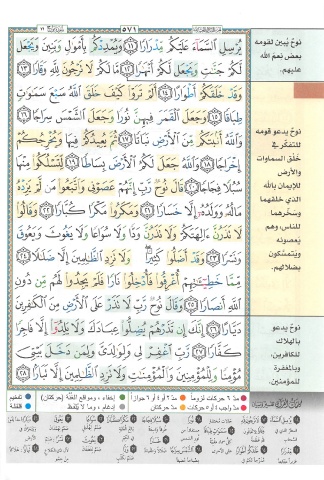 ٥٧١
يُرْسِلِ ٱلسَّمَآءَ عَلَيْكُم مِّدْرَارًا ١١ وَيُمْدِدْكُم بِأَمْوَٰلٍ وَبَنِينَ وَيَجْعَل
لَّكُمْ جَنَّٰتٍ وَيَجْعَل لَّكُمْ أَنْهَٰرًا ١٢ مَّا لَكُمْ لَا تَرْجُونَ لِلَّهِ وَقَارًا ١٣
وَقَدْ خَلَقَكُمْ أَطْوَارًا ١٤ أَلَمْ تَرَوْا۟ كَيْفَ خَلَقَ ٱللَّهُ سَبْعَ سَمَٰوَٰتٍ
طِبَاقًا ١٥ وَجَعَلَ ٱلْقَمَرَ فِيهِنَّ نُورًا وَجَعَلَ ٱلشَّمْسَ سِرَاجًا ١٦
وَٱللَّهُ أَنۢبَتَكُم مِّنَ ٱلْأَرْضِ نَبَاتًا ١٧ ثُمَّ يُعِيدُكُمْ فِيهَا وَيُخْرِجُكُمْ
إِخْرَاجًا ١٨ وَٱللَّهُ جَعَلَ لَكُمُ ٱلْأَرْضَ بِسَاطًا ١٩ لِّتَسْلُكُوا۟ مِنْهَا
سُبُلًا فِجَاجًا ٢٠ قَالَ نُوحٌ رَّبِّ إِنَّهُمْ عَصَوْنِى وَٱتَّبَعُوا۟ مَن لَّمْ يَزِدْهُ
مَالُهُۥ وَوَلَدُهُۥٓ إِلَّا خَسَارًا ٢١ وَمَكَرُوا۟ مَكْرًا كُبَّارًا ٢٢ وَقَالُوا۟
لَا تَذَرُنَّ ءَالِهَتَكُمْ وَلَا تَذَرُنَّ وَدًّا وَلَا سُوَاعًا وَلَا يَغُوثَ وَيَعُوقَ
وَنَسْرًا ٢٣ وَقَدْ أَضَلُّوا۟ كَثِيرًا وَلَا تَزِدِ ٱلظَّٰلِمِينَ إِلَّا ضَلَٰلًا ٢٤
مِّمَّا خَطِيٓـَٰٔتِهِمْ أُغْرِقُوا۟ فَأُدْخِلُوا۟ نَارًا فَلَمْ يَجِدُوا۟ لَهُم مِّن دُونِ
ٱللَّهِ أَنصَارًا ٢٥ وَقَالَ نُوحٌ رَّبِّ لَا تَذَرْ عَلَى ٱلْأَرْضِ مِنَ ٱلْكَٰفِرِينَ
دَيَّارًا ٢٦ إِنَّكَ إِن تَذَرْهُمْ يُضِلُّوا۟ عِبَادَكَ وَلَا يَلِدُوٓا۟ إِلَّا فَاجِرًا
كَفَّارًا ٢٧ رَّبِّ ٱغْفِرْ لِى وَلِوَٰلِدَىَّ وَلِمَن دَخَلَ بَيْتِىَ
مُؤْمِنًا وَلِلْمُؤْمِنِينَ وَٱلْمُؤْمِنَٰتِ وَلَا تَزِدِ ٱلظَّٰلِمِينَ إِلَّا تَبَارًۢا ٢٨
نوحٌ يُبيّن لقومه
بعض نعم الله
عليهم.
نوحٌ يدعو قومه
للتفكّر في
خلق السماوات
والأرض
للإيمان بالله
الذي خلقهما
وسخّرهما
للناس، وهم
يعصونه
ويتمسّكون
بضلالهم.
نوحٌ يدعو
بالهلاك
للكافرين،
وبالمغفرة
للمؤمنين.
مدّ ٦ حركات لزوماً
مدّ ٢ أو ٤ أو ٦ جوازاً
إخفاء، ومواقع الغُنّة (حركتان)
تفخيم
مدّ واجب ٤ أو ٥ حركات
مدّ حركتان
إدغام، وما لا يُلفظ
قلقلة